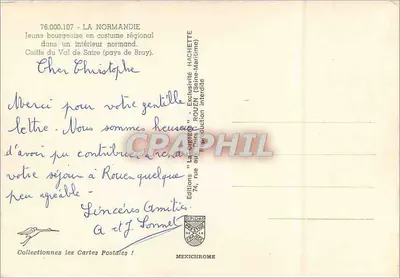 76.000.107 - LA NORMANDIE
Jeune bourgeoise en costume régional
dans un intérieur normand.
Coiffe du Val de Saire (pays de Bray).
Cher Christophe
Merci pour votre gentille
lettre. Nous sommes heureux
d'avoir pu contribuer à rendre
votre séjour à Rouen quelque
peu agréable -
Sincères Amitiés
A et J. Sonnet
Collectionnez les Cartes Postales !
Editions "La Cigogne" - Exclusivité HACHETTE
74, rue ROUEN (Seine-Maritime)
Reproduction interdite
MEXICHROME
CPAPHIL